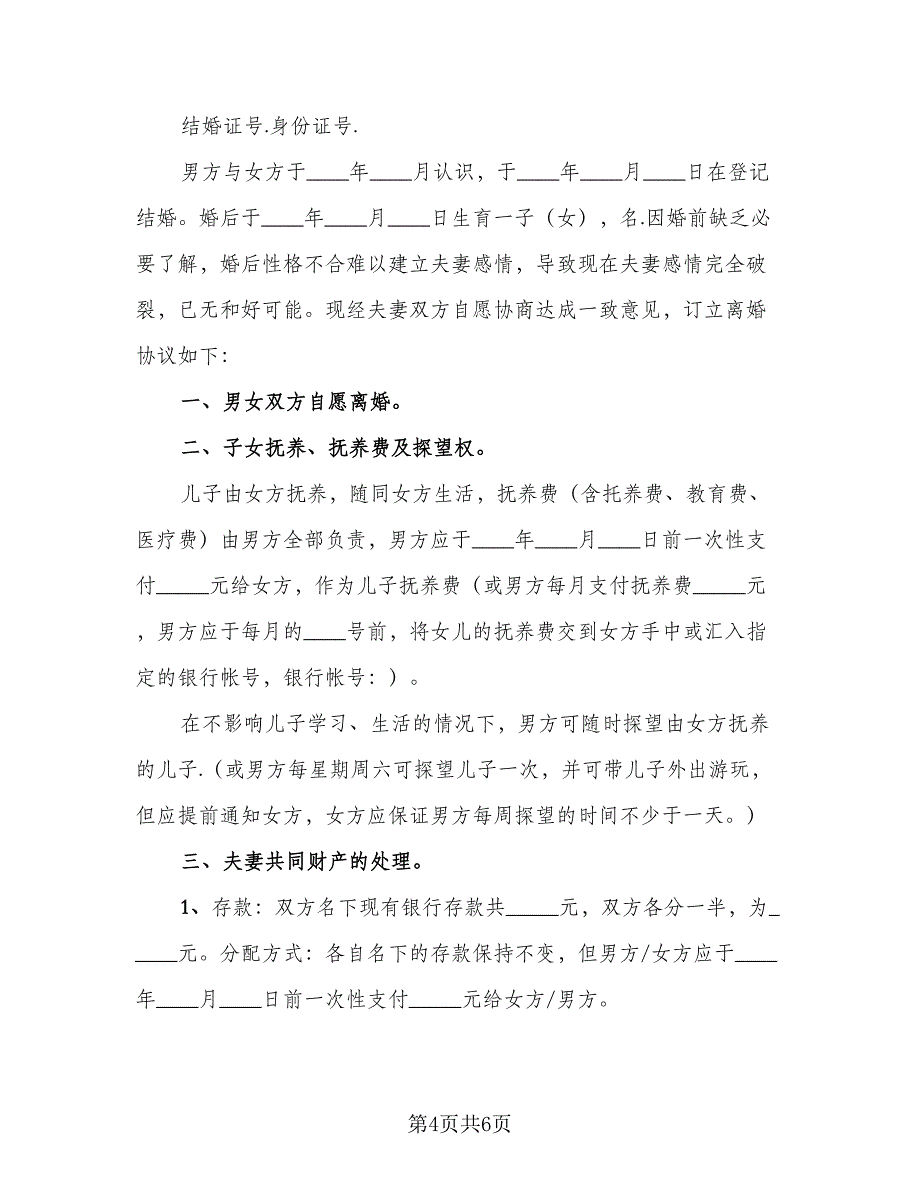 结婚证号.身份证号.
男方与女方于____年____月认识，于____年____月____日在登记
结婚。婚后于____年____月____日生育一子（女），名.因婚前缺乏必
要了解，婚后性格不合难以建立夫妻感情，导致现在夫妻感情完全破
裂，已无和好可能。现经夫妻双方自愿协商达成一致意见，订立离婚
协议如下：
一、男女双方自愿离婚。
二、子女抚养、抚养费及探望权。
儿子由女方抚养，随同女方生活，抚养费（含托养费、教育费、
医疗费）由男方全部负责，男方应于____年____月____日前一次性支
付_____元给女方，作为儿子抚养费（或男方每月支付抚养费_____元
，男方应于每月的____号前，将女儿的抚养费交到女方手中或汇入指
定的银行帐号，银行帐号：）。
在不影响儿子学习、生活的情况下，男方可随时探望由女方抚养
的儿子.（或男方每星期周六可探望儿子一次，并可带儿子外出游玩，
但应提前通知女方，女方应保证男方每周探望的时间不少于一天。）
三、夫妻共同财产的处理。
1、存款：双方名下现有银行存款共_____元，双方各分一半，为_
____元。分配方式：各自名下的存款保持不变，但男方/女方应于____
年____月____日前一次性支付_____元给女方/男方。
第4页共6页